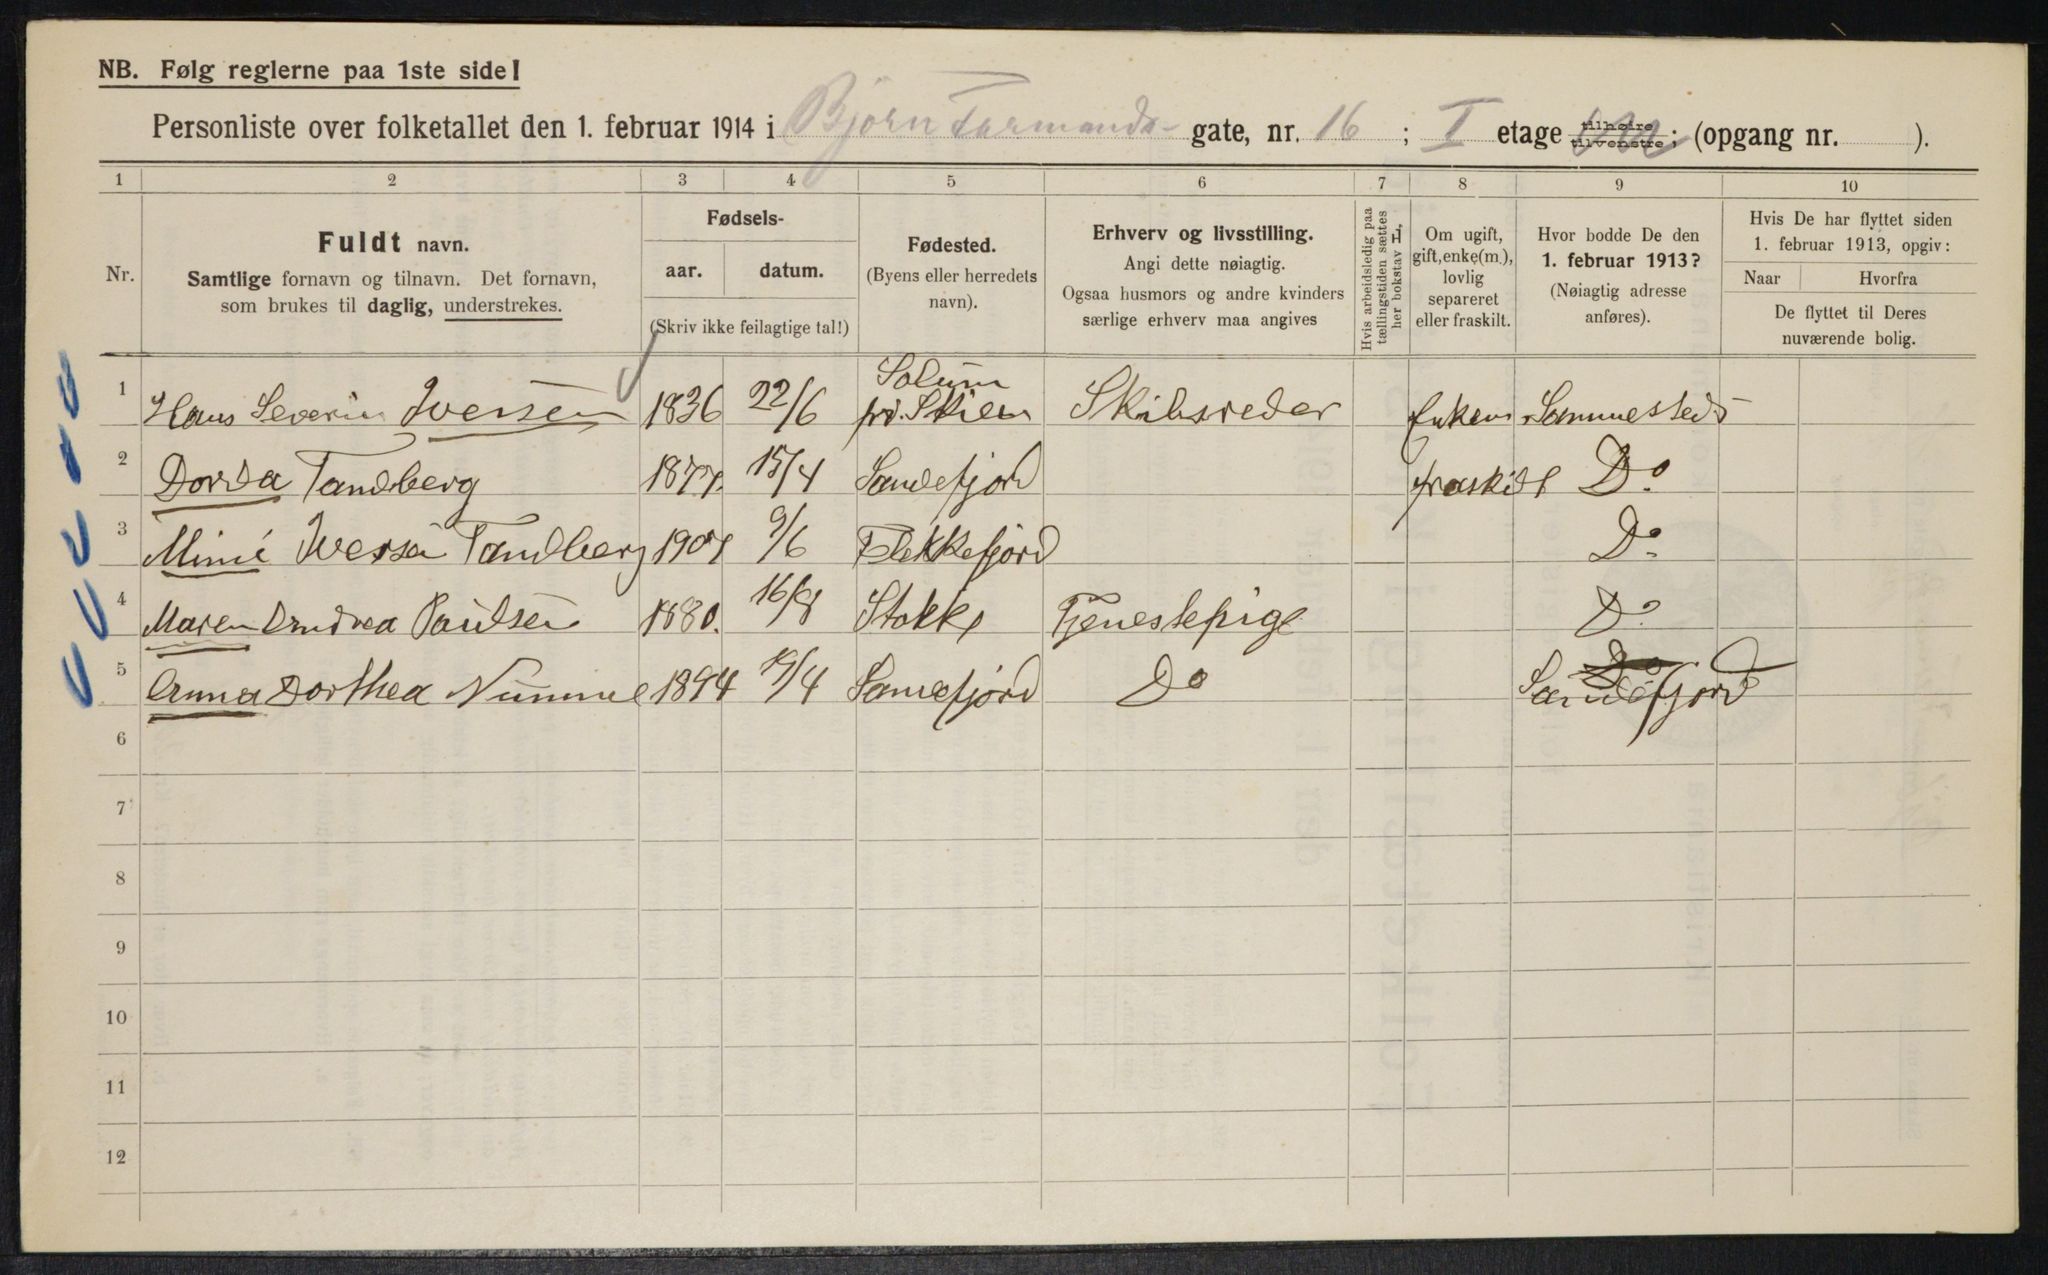 NB. Følg reglerne paa 1ste side!
Personliste over folketallet den 1. februar 1914 i Bjørn Farmands- gate, nr. 16 ; I etage tilhøire tilvenstre; (opgang nr. ).
1 2 3 4 5 6 7 8 9 10
Nr.
Fuldt navn.
Samtlige fornavn og tilnavn. Det fornavn,
som brukes til daglig, understrekes.
Fødsels-
aar. datum.
(Skriv ikke feilagtige tal!)
Fødested.
(Byens eller herredets
navn).
Erhverv og livsstilling.
Angi dette nøiagtig.
Ogsaa husmors og andre kvinders
særlige erhverv maa angives
Hvis arbeidsledig paa
tællingstiden sættes
her bokstav L.
Om ugift,
gift, enke(m.),
lovlig
separeret
eller fraskilt.
Hvor bodde De den
1. februar 1913?
(Nøiagtig adresse
anføres).
Hvis De har flyttet siden
1. februar 1913, opgiv:
Naar Hvorfra
De flyttet til Deres
nuværende bolig.
1 Hans Severin Iversen 1836 22/6 Solum pr. Skien Skibsreder Enkem Sammesteds
2 Dorda Tandberg 1877. 15/4 Sandefjord fraskilt Do
3 Mimi Iversen Tandberg 9/6 Flekkefjord Do
4 Maren Andrea Paulsen 1880. 16/8 Stokke Tjenestepige Do
5 Anna Dorthea Nummel 1894 19/4 Sandefjord Do Do Sandefjord
6
7
8
9
10
11
12